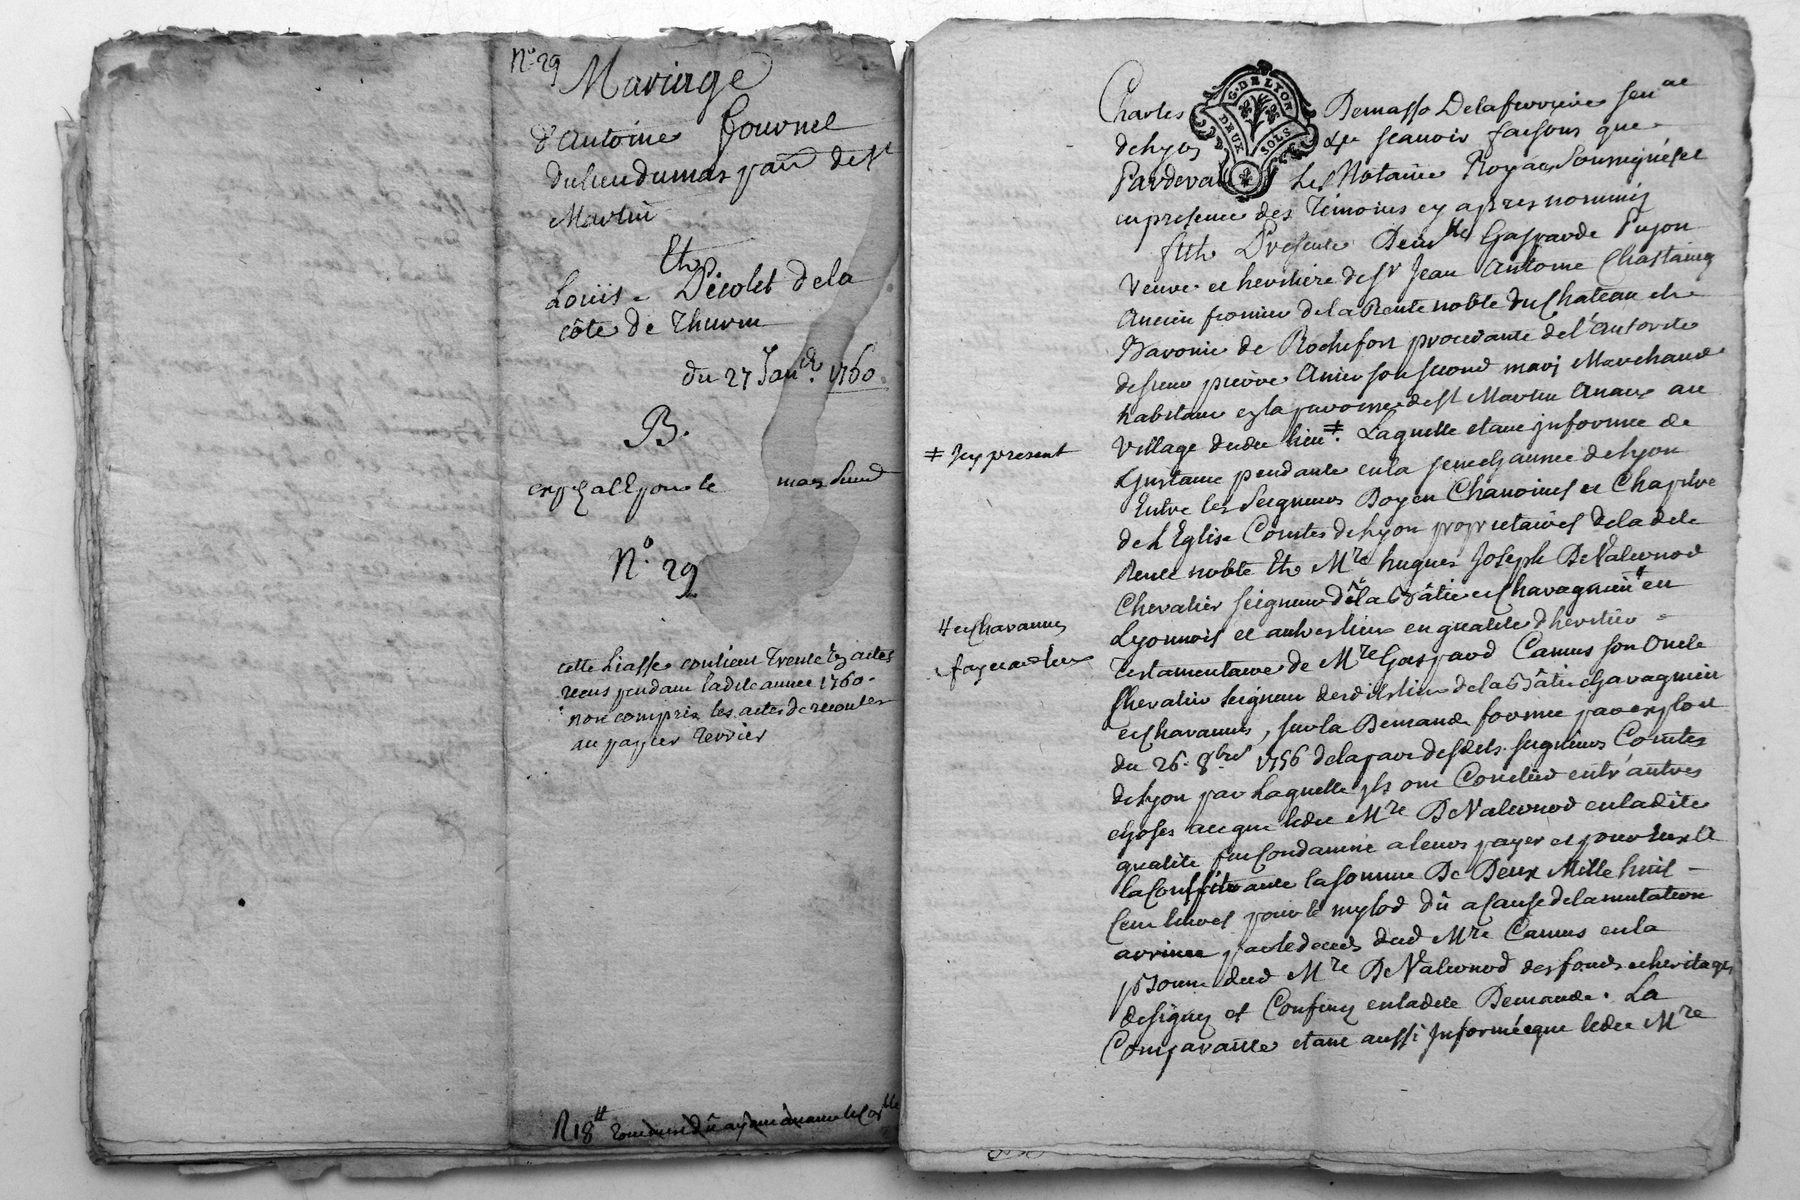 N.º 29
Mariage
d'Antoine Gournel
du lieu du mas parr de St
Martin
Et
Louise Déiolet dela
côte de Thurin
du 27 Janer. 1760.
B.
N.º 29
cette Liasse contient Trente actes
receus pendant ladite année 1760.
non compris les actes de
au papier Terrier
R 18 tt
Charles Demasso Delaferriere Senal
delyon &a sçavoir faisons que
Pardevant Les Notaires Royaux Soussignés et
en presence des Temoins cy apres nommés
fut Presente Demlle Gasparde Pujon
Veuve et heritiere de Sr Jean Antoine Chastaing
Ancien fermier dela Rente noble du Chateau et
Baronie de Rochefort procedante de l'autorite
de sieur pierre Anier son second mary Marchand
habitant en la paroisse de St Martin Anaux au
Village dudit lieu ǂ. Laquelle etant informee de
Linstance pendante en la senechaussee de Lyon
Entre les Seigneurs Doyen Chanoines et Chapitre
de L'Eglise Comtes de Lyon proprietaires de la dite
Rente noble Et Mre hugues Joseph De Valernod
Chevalier seigneur de la Bâtie et Chavagnieu ǂ en
Lyonnois et autres lieux en qualite d'heritier
Testamentaire de Mre Gaspard Camus son Oncle
Chevalier Seigneur desdits lieux de la Bâtie chavagnieu
et Chavannes, sur la Demande formee par exploit
du 26. 8bre 1756 de la part desdits seigneurs Comtes
de Lyon par Laquelle ils ont Conclud entr'autres
choses a ce que ledit Mre De Valernod en la dite
qualite fut Condamné a leur payer et pour eux a
la Constituante la somme De Deux Mille huit
Cent livres pour le mylod dû a cause de la mutation
arrivee par le deced dud Mre Camus en la
psonne dud Mre De Valernod des fonds et heritages
designez et Confinez en ladite Demande. La
Comparante etant aussi Informée que ledit Mre
ǂ Icy present
ǂ et Chavannes